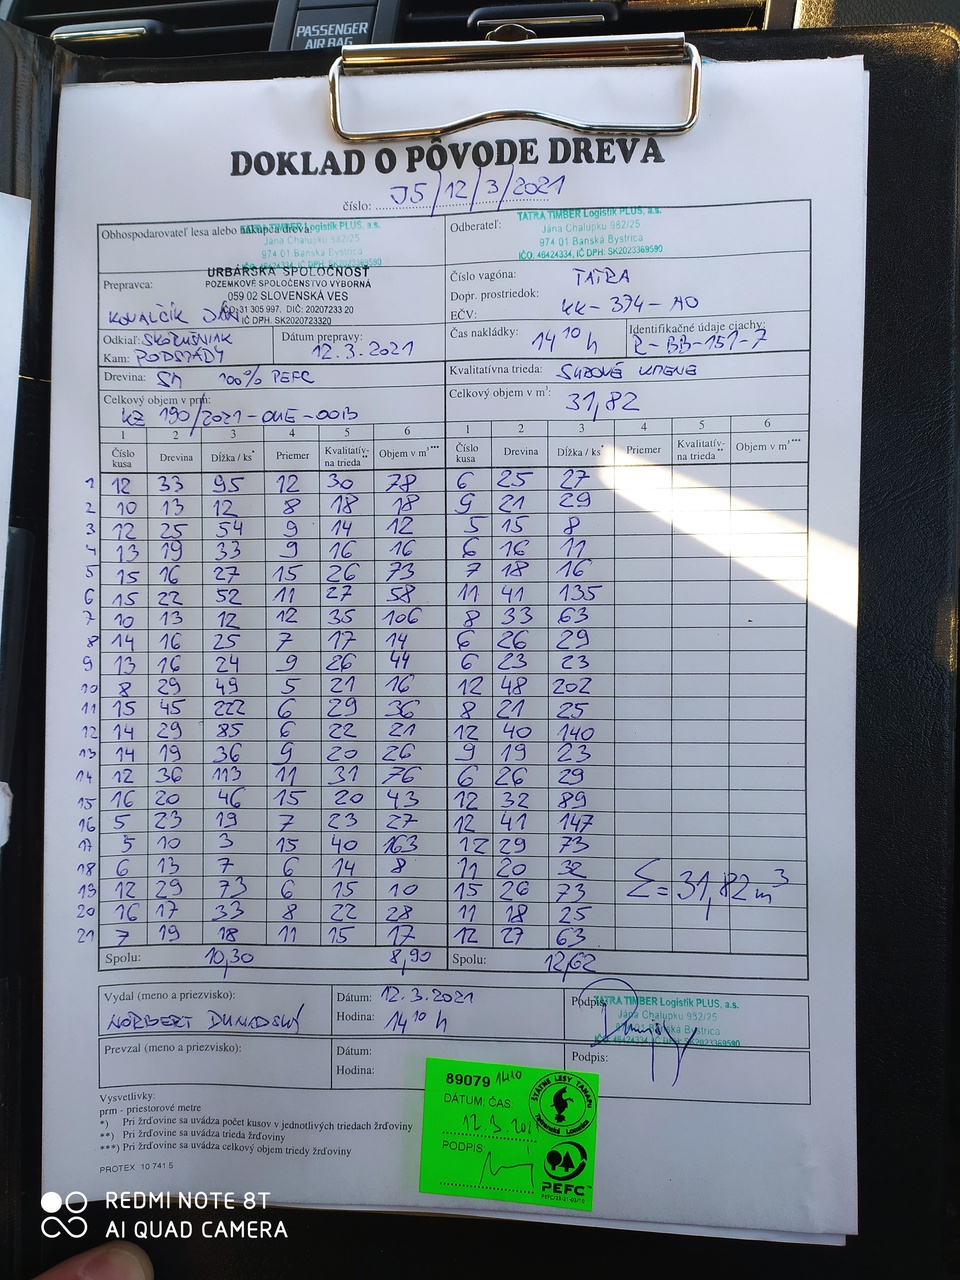 PASSENGER
AIR BAG
DOKLAD O PÔVODE DREVA
číslo: J5/12/3/2021
Obhospodarovateľ lesa alebo nákupca dreva:
TATRA TIMBER Logistik PLUS, a.s.
Jána Chalupku 982/25
974 01 Banská Bystrica
IČO: 46424334, IČ DPH: SK2023369590
Odberateľ:
TATRA TIMBER Logistik PLUS, a.s.
Jána Chalupku 982/25
974 01 Banská Bystrica
IČO: 46424334, IČ DPH: SK2023369590
URBÁRSKA SPOLOČNOSŤ
POZEMKOVÉ SPOLOČENSTVO VÝBORNÁ
059 02 SLOVENSKÁ VES
IČO: 31 305 997, DIČ: 20207233 20
IČ DPH: SK2020723320
Prepravca:
KOVALČÍK JÁN
Číslo vagóna: TATRA
Dopr. prostriedok:
EČV: KK-374-AO
Odkiaľ: SKORUŠNIAK
Kam: PODSPÁDY
Dátum prepravy:
12.3.2021
Čas nakládky: 14 10 h
Identifikačné údaje ciachy:
R-BB-151-7
Drevina: SM 100% PEFC
Kvalitatívna trieda: SUROVÉ KMENE
Celkový objem v prm:
KZ 190/2021-OME-OOB
Celkový objem v m³: 31,82
1 2 3 4 5 6 1 2 3 4 5 6
Číslo kusa Drevina Dĺžka / ks* Priemer Kvalitatív-na trieda** Objem v m³*** Číslo kusa Drevina Dĺžka / ks* Priemer Kvalitatív-na trieda** Objem v m³***
1 12 33 95 12 30 78 6 25 27
2 10 13 12 8 18 18 9 21 29
3 12 25 54 9 14 12 5 15 8
4 13 19 33 9 16 16 6 16 11
5 15 16 27 15 26 73 7 18 16
6 15 22 52 11 27 58 11 41 135
7 10 13 12 12 35 106 8 33 63
8 14 16 25 7 17 14 6 26 29
9 13 16 24 9 26 44 6 23 23
10 8 29 49 5 21 16 12 48 202
11 15 45 222 6 29 36 8 21 25
12 14 29 85 6 22 21 12 40 140
13 14 19 36 9 20 26 9 19 23
14 12 36 113 11 31 76 6 26 29
15 16 20 46 15 20 43 12 32 89
16 5 23 19 7 23 27 12 41 147
17 5 10 3 15 40 163 12 29 73
18 6 13 7 6 14 8 11 20 32
19 12 29 73 6 15 10 15 26 73
20 16 17 33 8 22 28 11 18 25
21 7 19 18 11 15 17 12 27 63
Σ = 31,82 m³
Spolu: 10,30 8,90 Spolu: 12,62
Vydal (meno a priezvisko):
NORBERT DUNAJSKÝ
Dátum: 12.3.2021
Hodina: 14 10 h
Podpis:
TATRA TIMBER Logistik PLUS, a.s.
Jána Chalupku 982/25
974 01 Banská Bystrica
IČO: 46424334, IČ DPH: SK2023369590
Prevzal (meno a priezvisko):
Dátum:
Hodina:
Podpis:
Vysvetlivky:
prm - priestorové metre
*) Pri žrďovine sa uvádza počet kusov v jednotlivých triedach žrďoviny
**) Pri žrďovine sa uvádza trieda žrďoviny
***) Pri žrďovine sa uvádza celkový objem triedy žrďoviny
PROTEX 10 741 5
89079 1410
DÁTUM, ČAS:
12.3.2021
PODPIS
ŠTÁTNE LESY TANAPU
Tatranská Lomnica
PEFC™
REDMI NOTE 8T
AI QUAD CAMERA